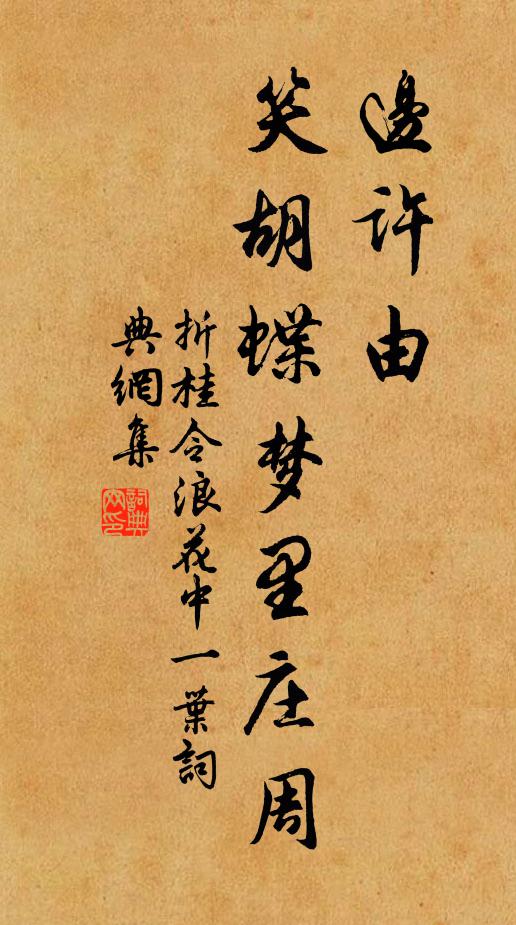 邊许由
笑胡蝶梦里庄周
折桂令浪花中一葉詞
典網集
詞典網印